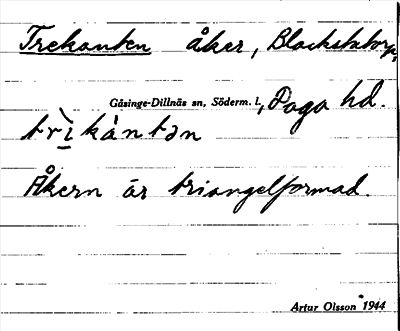 Trekanten åker, Blackstatorp,
Gåsinge-Dillnäs sn, Söderm. l., Daga hd.
trìkàntən
Åkern är triangelformad.
Artur Olsson 1944